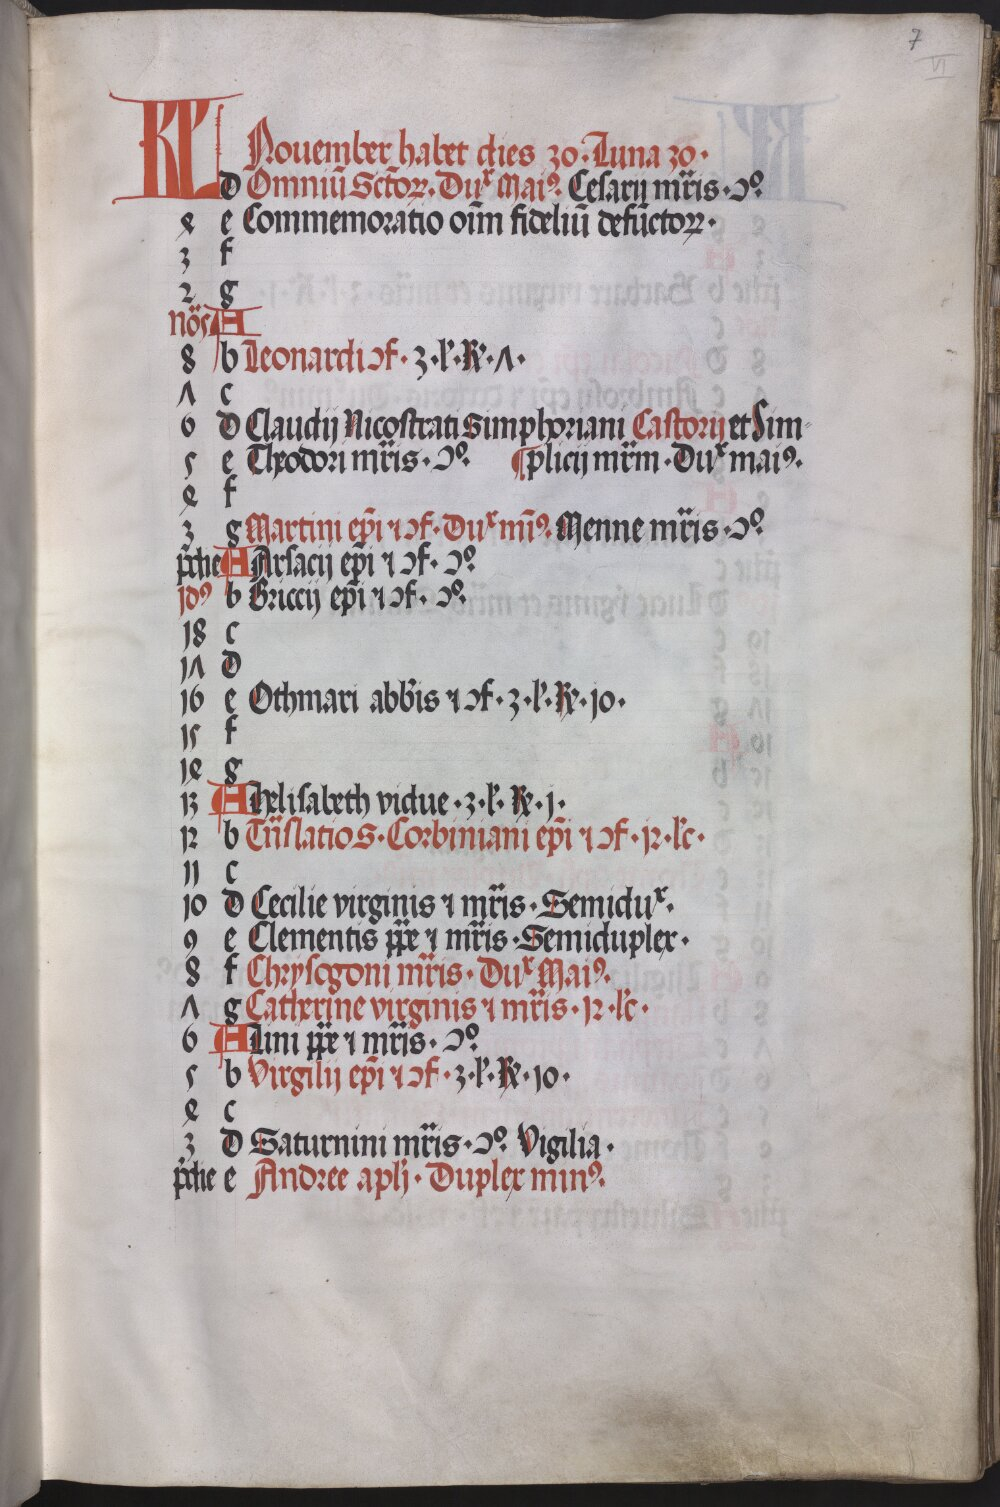 7
VI
KL
Nouember habet dies 30 · Luna 30 ·
D Omniū Sctōꝝ · Duˣ Maiꝰ · Cesarij mr̄is · ↄ͛ꝰ
ꝝ e Commemoratio oīm fideliū defūctoꝝ ·
3 f
2 g
nōs A
8 b Leonardi ↄf · 3 · l̕ · ℞ · Λ ·
Λ c
6 D Claudij Nicostrati Simphoriani Castorij et Sim⸗
5 e Theodori mr̄is · ↄꝰ ¶ plicij mr̄m · Duˣ maiꝰ ·
4 f
3 g Martini ep̄i ⁊ ↄf · Duˣ mīꝰ · Menne mr̄is · ↄꝰ
p̄die A Arsacij ep̄i ⁊ ↄf · ↄꝰ
jdꝰ b Briccij ep̄i ⁊ ↄf · ↄꝰ
18 c
1Λ D
16 e Othmari abb̄is ⁊ ↄf · 3 · l̕ · ℞ · 10 ·
15 f
14 g
13 A Helisabeth vidue · 3 · l̕ · ℞ · 1 ·
12 b Trn̄slatio S · Corbiniani ep̄i ⁊ ↄf · 12 · lc̄ ·
11 c
10 D Cecilie virginis ⁊ mr̄is · Semiduˣ ·
9 e Clementis pp̄e ⁊ mr̄is · Semiduplex ·
8 f Chrysogoni mr̄is · Duˣ Maiꝰ ·
Λ g Catherine virginis ⁊ mr̄is · 12 · lc̄ ·
6 A Lini pp̄e ⁊ mr̄is · ↄꝰ
5 b Virgilij ep̄i ⁊ ↄf · 3 · l̕ · ℞ · 10 ·
4 c
3 D Saturnini mr̄is · ↄꝰ Vigilia ·
p̄die e Andree apl̄j · Duplex minꝰ ·